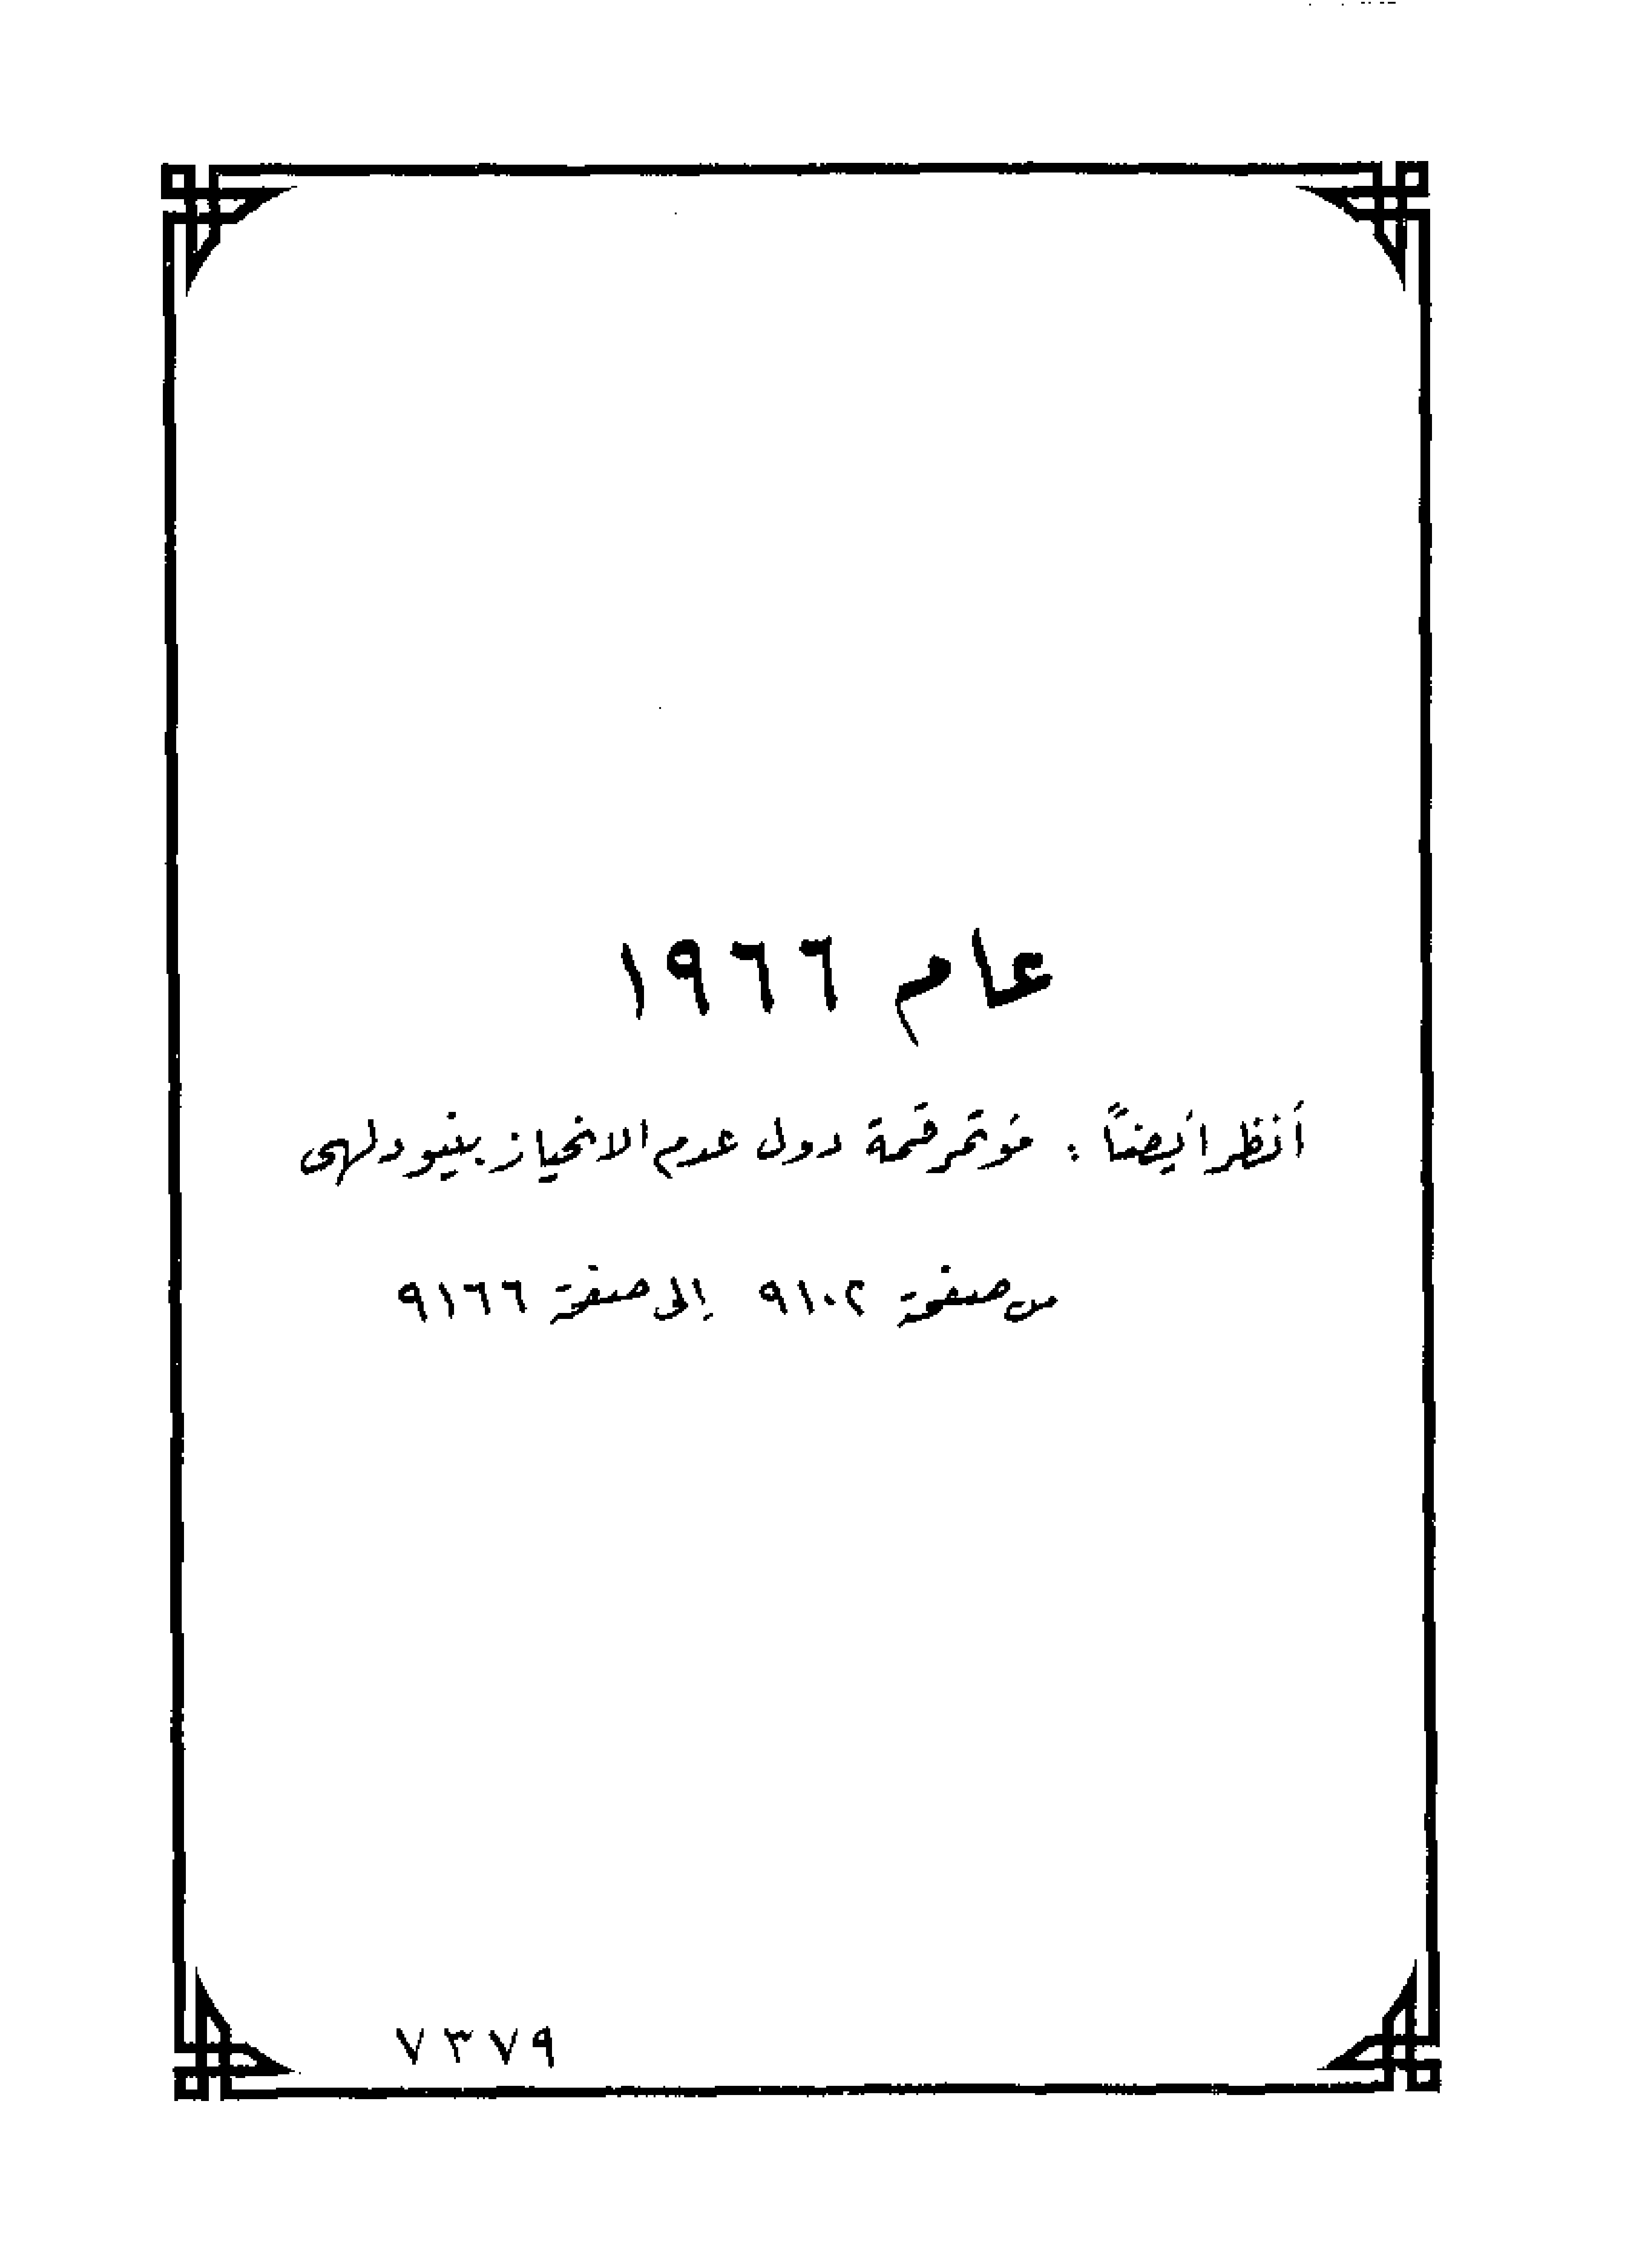 عام ١٩٦٦
أنظر أيضاً : مؤتمر قمة دول عدم الانحياز بنيودلهى
من صفحة ٩١٠٢ إلى صفحة ٩١٦٦
٧٣٧٩